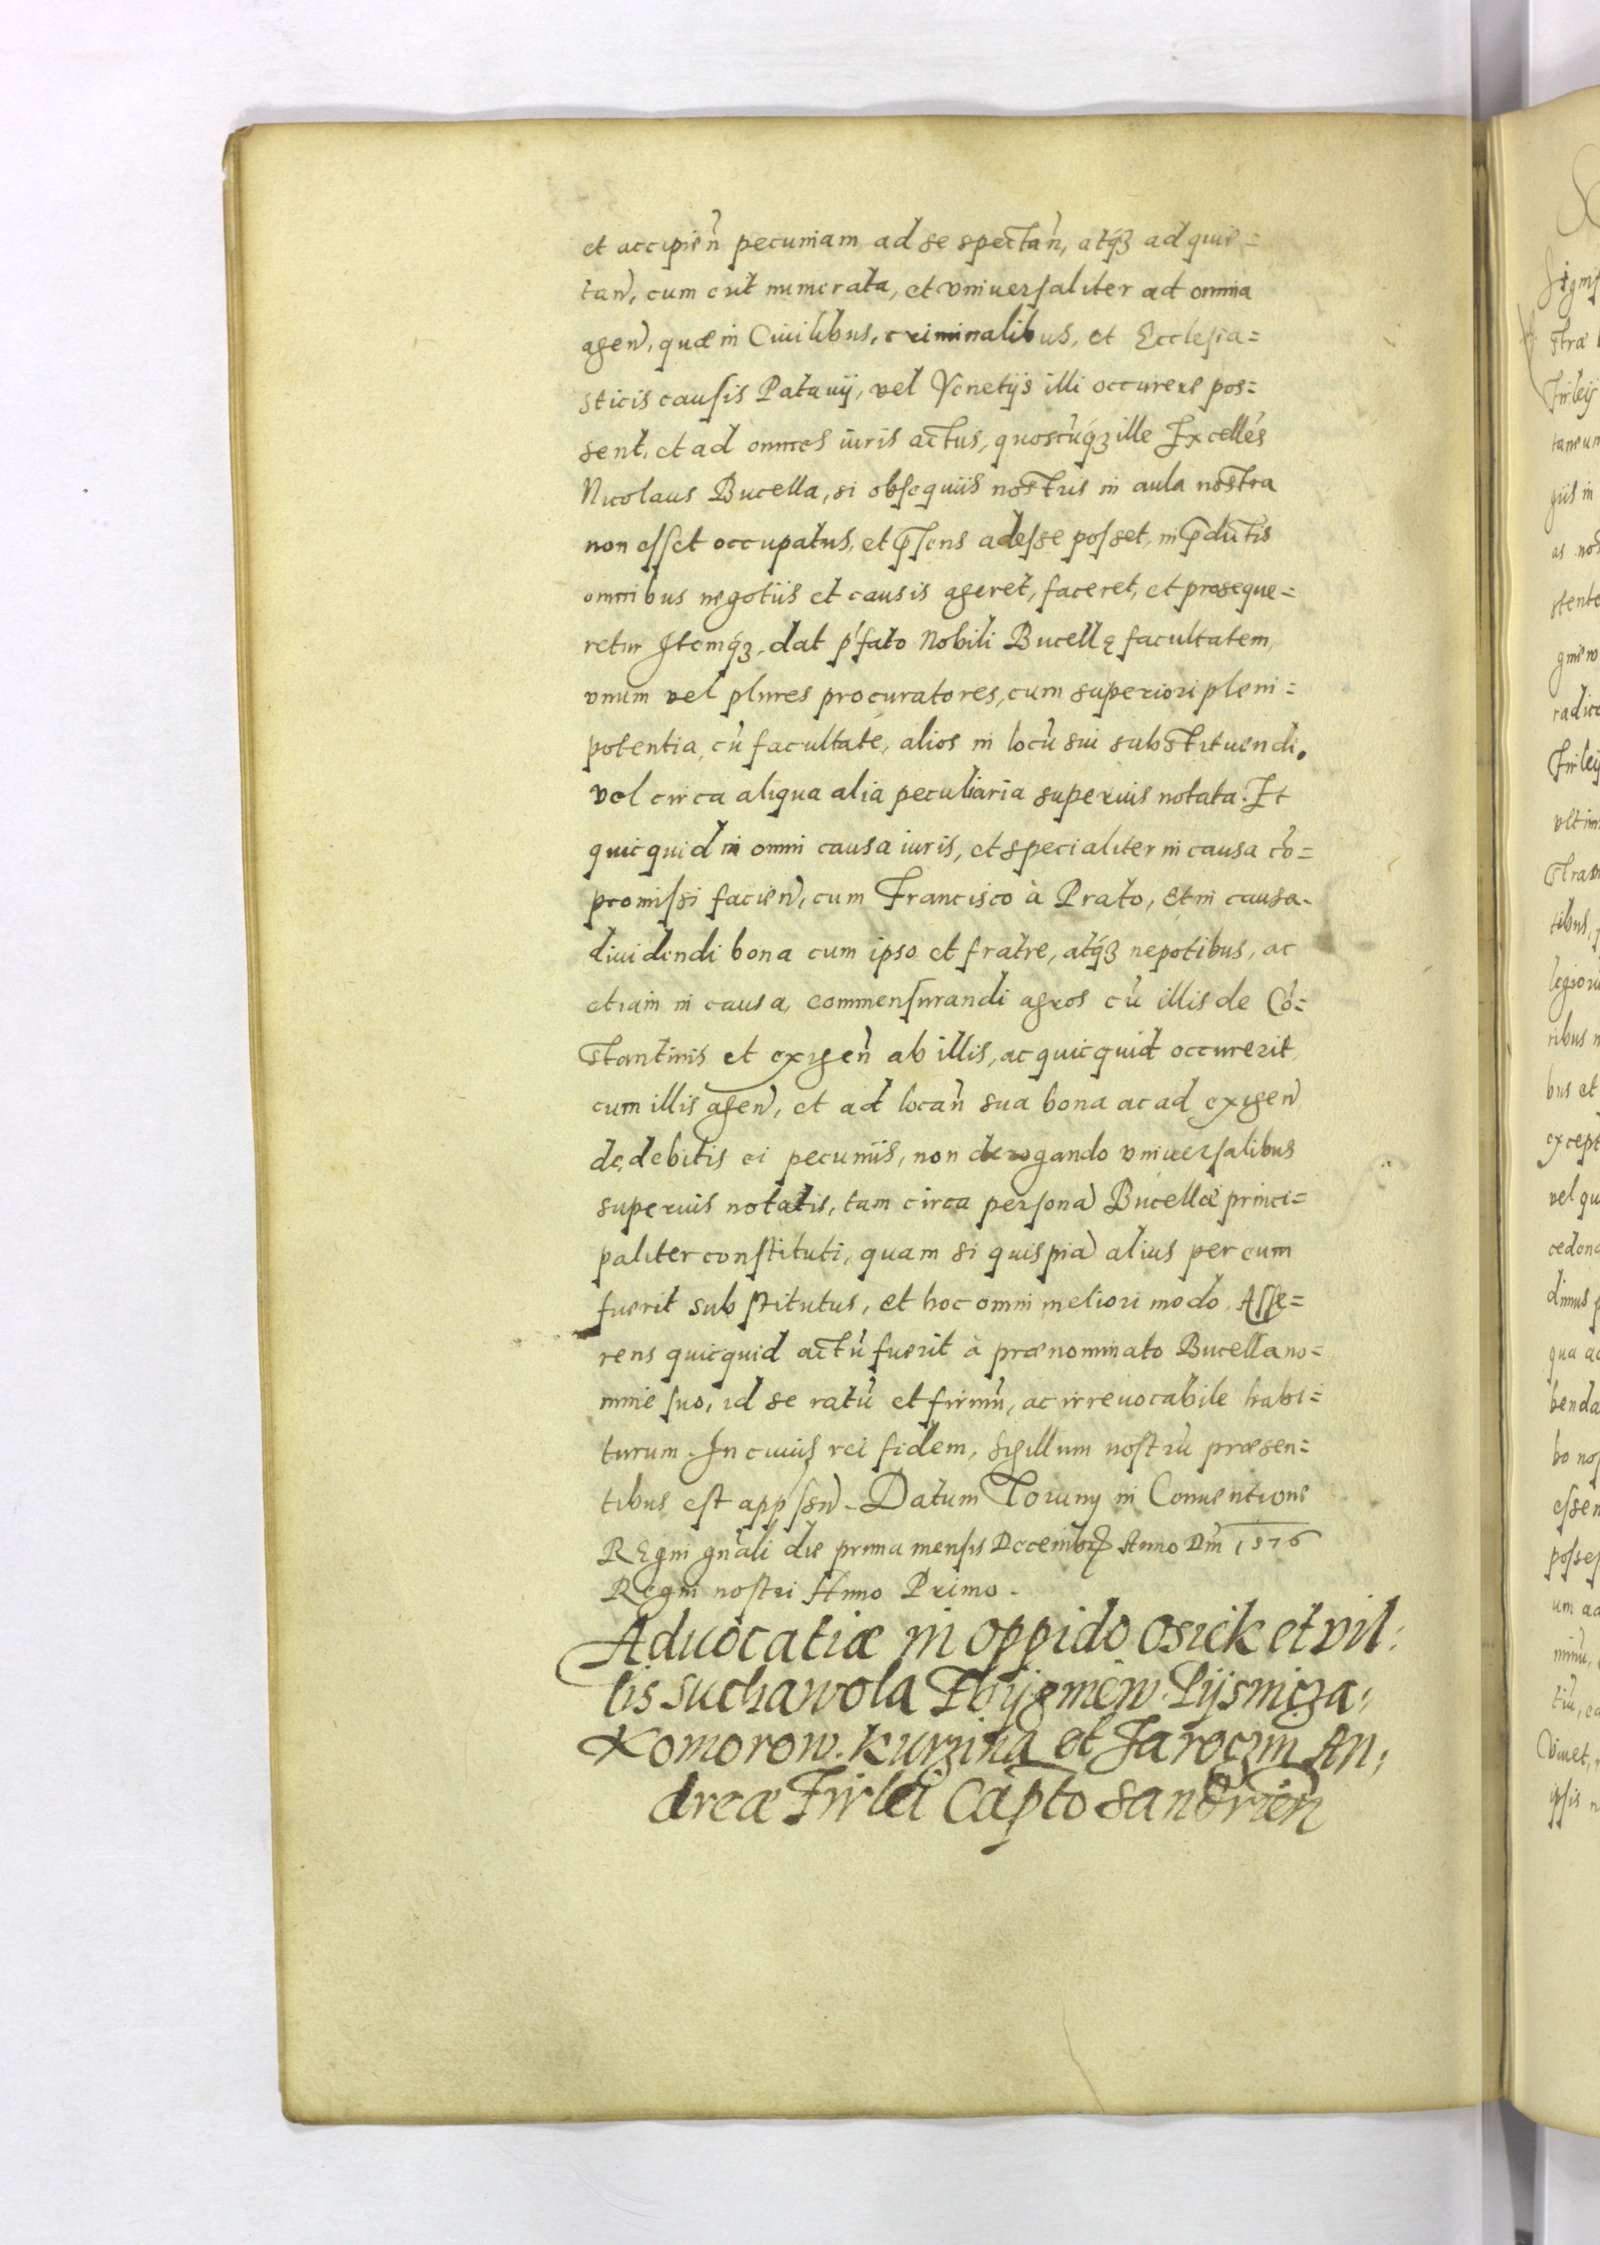 et accipien̄ pecuniam ad se spectan̄, atq́ꝫ ad quie=
tan̄, cum erit numerata, et vniuersaliter ad omnia
agen̄, quæ in Ciuilibus, criminalibus, et Ecclesia=
sticis causis Patauij, vel Venetijs illi occurere pos=
sent, et ad omnes iuris actus, quoscūq́ꝫ ille Excellēs
Nicolaus Bucella, si obsequiis nostris in aula nostra
non esset occupatus, et p̄sens adesse posset, in p̄dictis
omnibus negotiis et causis ageret, faceret, et proseque=
retur Itemq́ꝫ, dat p̄fato Nobili Bucellę facultatem,
vnum vel plures procuratores, cum superiori pleni=
potentia, cū facultate, alios in locū sui substituendi,
vel circa aliqua alia peculiaria superius notata. Et
quicquid in omni causa iuris, et specialiter in causa cō=
promissi facien̄, cum Francisco à Prato, et in causa
diuidendi bona cum ipso et fratre, atq́ꝫ nepotibus, ac
etiam in causa, commensurandi agros cū illis de Cō=
stantinis et exigen̄ ab illis, ac quicquid occurerit
cum illis agen̄, et ad locan̄ sua bona ac ad exigen̄
de debitis ei pecuniis, non derogando vniuersalibus
superius notatis, tam circa personā Bucellæ princi=
paliter constituti, quam si quispiā alius per eum
fuerit substitutus, et hoc omni meliori modo. Asse=
rens quicquid actū fuerit à prænominato Bucella no=
mine suo, id se ratū et firmū, ac irreuocabile habi=
turum. In cuius rei fidem, sigillum nostrū præsen=
tibus est app ssn̄. Datum Toruny in Conuentione
REgni gn̄ali die prima mensis Decembrꝭ Anno Dn̄i 1576
Regni nostri Anno Primo.
Aduocatiæ in oppido Osiek et vil:
lis Suchawola Zbÿgniew. Pÿsnicza,
Komorow. Kurzina et Jaroczin An,
dreæ Firlei Cap̄to Sandr̄ien̄